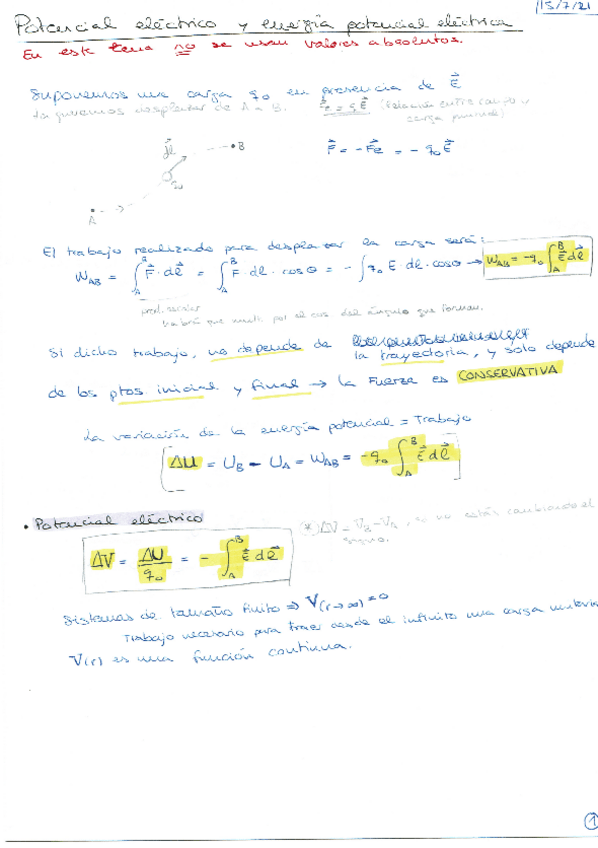 15/7/21
Potencial eléctrico y energía potencial eléctrica
En este tema no se usan valores absolutos.
Suponemos una carga q₀ en presencia de E⃗
La queremos desplazar de A a B. F⃗e = q E⃗ (Relación entre campo y
carga puntual)
F⃗ = -F⃗e = -q₀E⃗
dl⃗
B
q₀
A
El trabajo realizado para desplazar la carga será:
W_AB = ∫_A^B F⃗·dl⃗ = ∫_A^B F·dl·cosθ = -∫q₀ E·dl·cosθ → W_AB = -q₀ ∫_A^B E⃗ dl⃗
prod. escalar
habrá que mult. por el cos del ángulo que forman.
Si dicho trabajo, no depende de la trayectoria, y solo depende
de los ptos inicial y final → la Fuerza es CONSERVATIVA
La variación de la energía potencial = Trabajo
ΔU = U_B - U_A = W_AB = -q₀ ∫_A^B E⃗ dl⃗
• Potencial eléctrico
(*) ΔV = V_B - V_A, si no estás cambiando el
signo.
ΔV = ΔU/q₀ = -∫_A^B E⃗ dl⃗
Sistemas de tamaño finito ⇒ V(r→∞) = 0
Trabajo necesario para traer desde el infinito una carga unitaria
V(r) es una función continua.
1